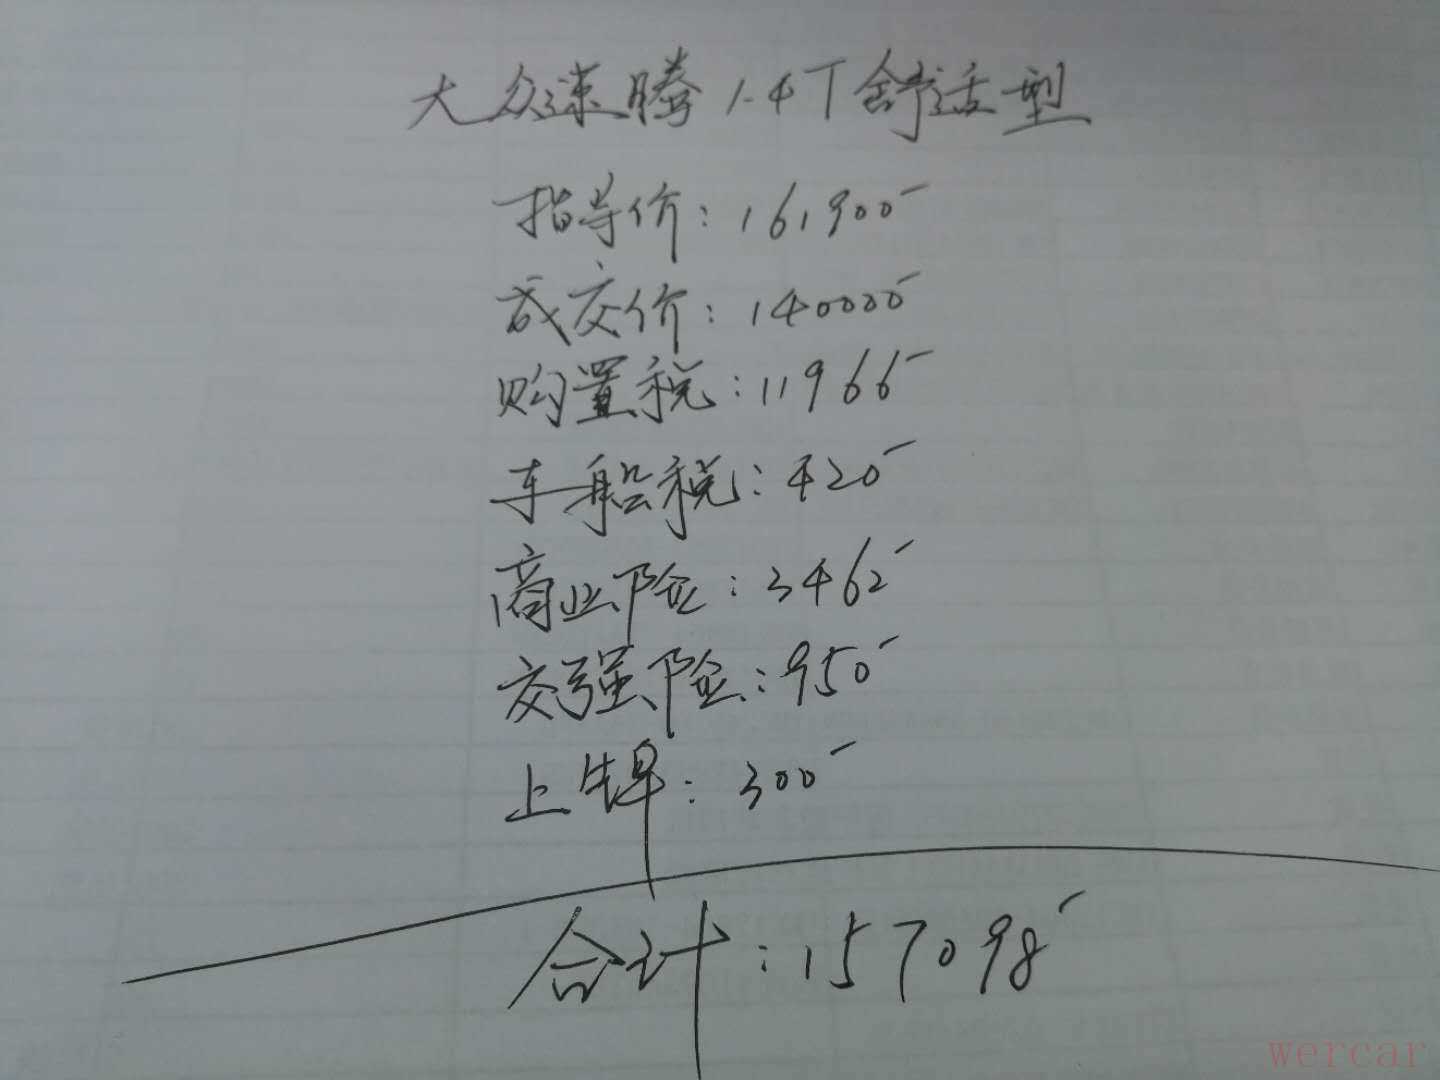 大众速腾1.4T舒适型
指导价：161900
成交价：140000
购置税：11966
车船税：420
商业险：3462
交强险：950
上牌：300
合计：157098
wercar